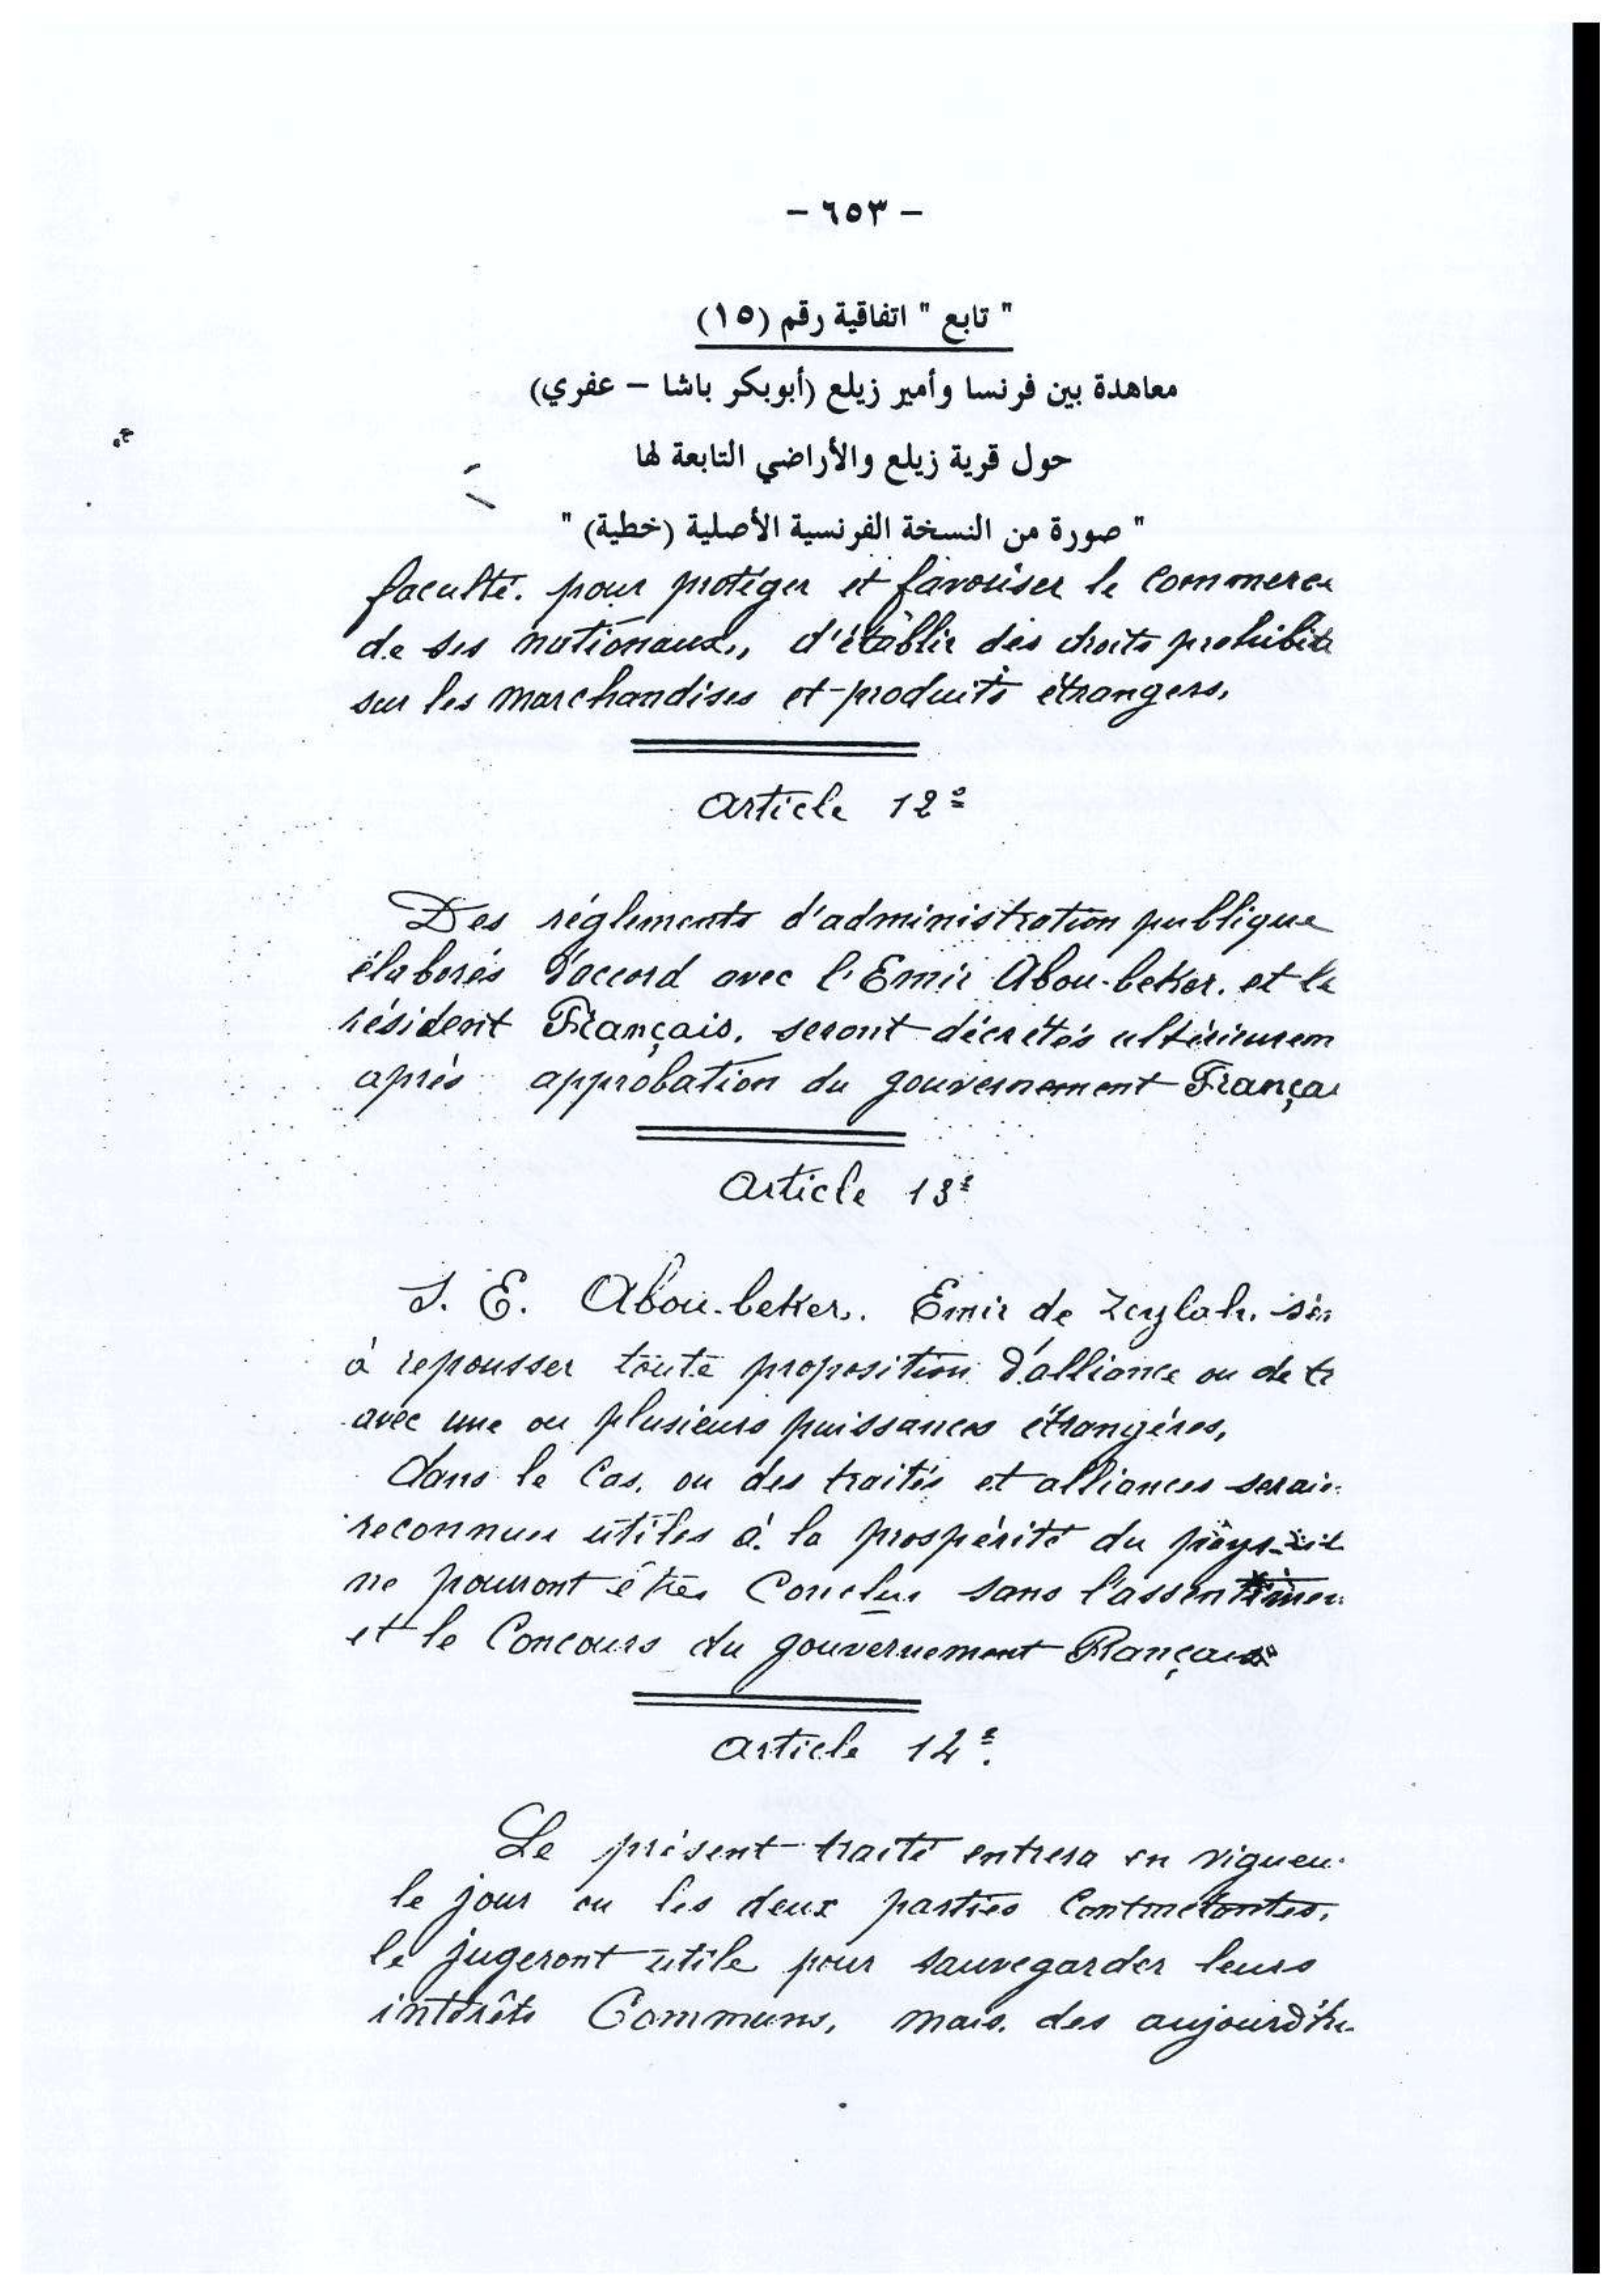 - ٦٥٣ -
" تابع " اتفاقية رقم (١٥)
معاهدة بين فرنسا وأمير زيلع (أبوبكر باشا - عفري)
حول قرية زيلع والأراضي التابعة لها
" صورة من النسخة الفرنسية الأصلية (خطية) "
faculté. pour protéger et favoriser le Commerce
de ses nationaux,, d'établir des droits prohibits
sur les marchandises et produits étrangers,
Article 12e
Des réglements d'administration publique
élaborés d'accord avec l'Emir Abou-beker. et le
résident Français. seront décrétés ultérieurem
après approbation du gouvernement Françai
Article 13e
S. E. Abou-beker,. Emir de Zeylah. s'en
à repousser toute proposition d'alliance ou de tr
avec une ou plusieurs puissances étrangères,
dans le Cas. ou des traités et alliances serai
reconnus utiles à la prospérité du pays-il
ne pouront êtres Conclus sans l'assentimen
et le Concours du gouvernement Français
Article 14e.
Le présent traité entrera en vigueu
le jour ou les deux parties Contractantes,
le jugeront utile pour sauvegarder leurs
intérêts Communs, mais. des aujourd'hu